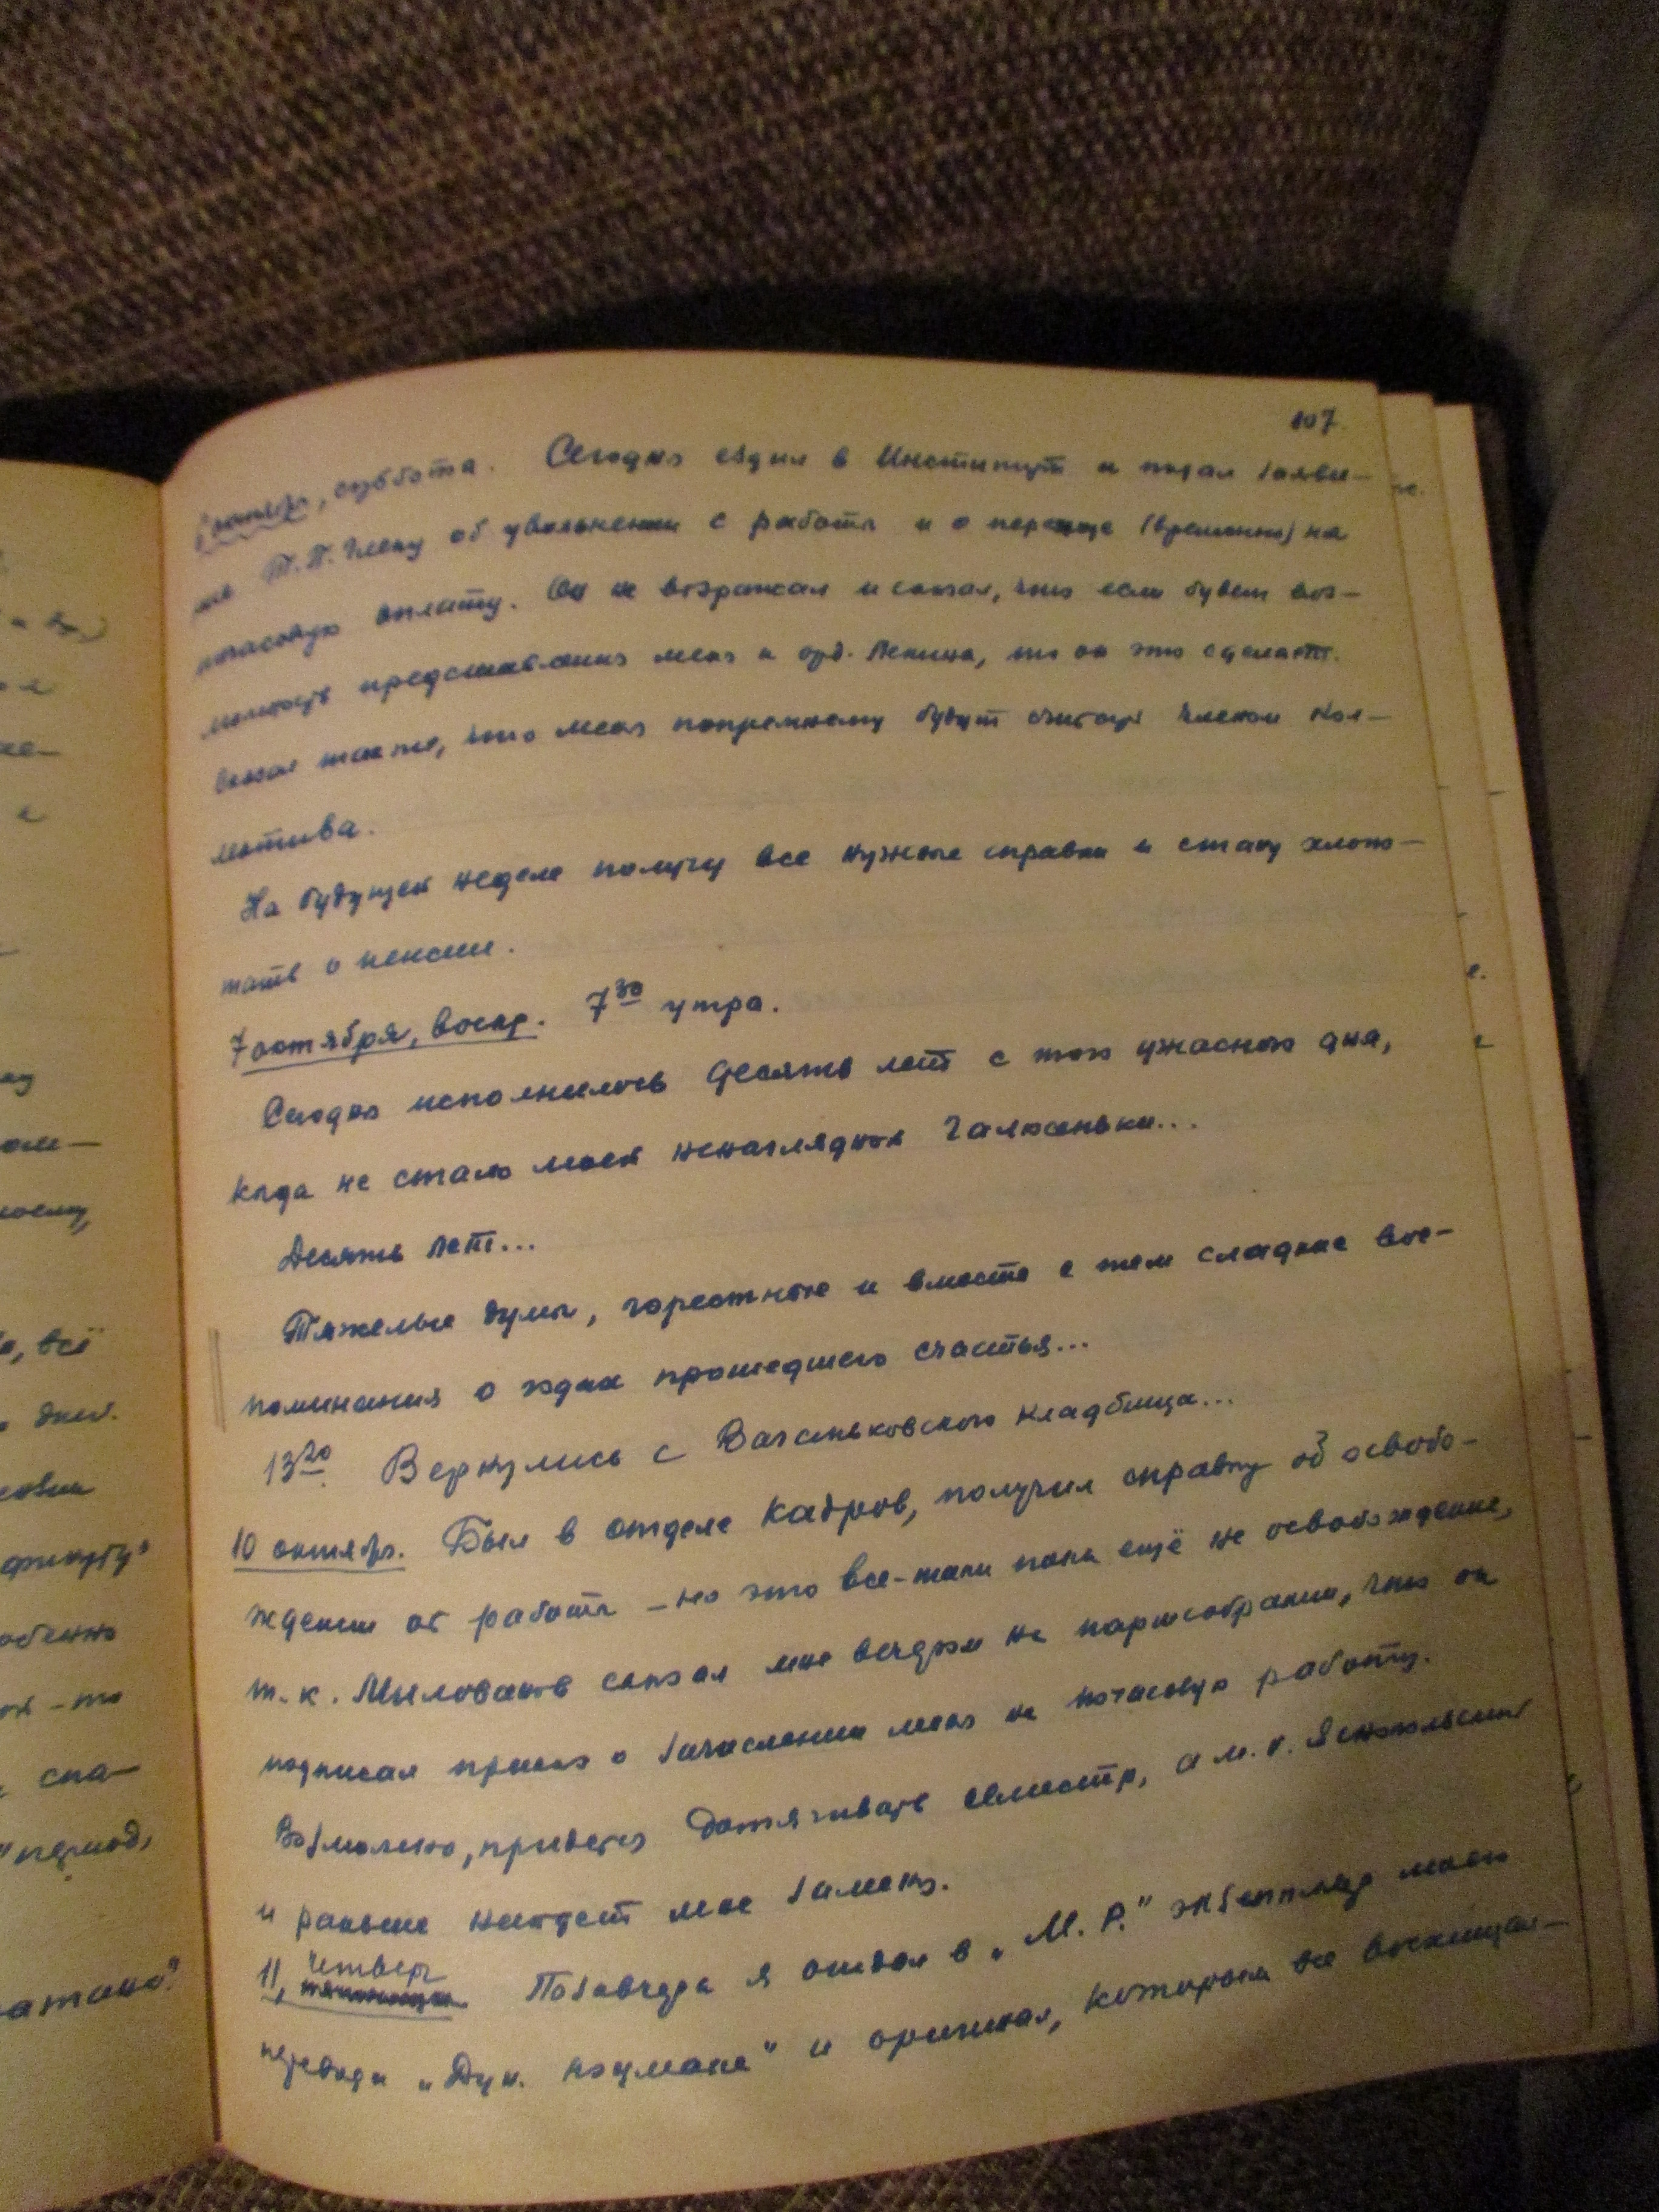 107.
октября, суббота. Сегодня ездил в Институт и подал заявле-
ние об увольнении с работы и о переходе (временно) на
почасовую оплату. Он не возражал и сказал, что если будет воз-
можность представления меня к орд. Ленина, то он это сделает.
Сказал также, что меня попрежнему будут считать членом кол-
лектива.
На будущей неделе получу все нужные справки и стану хлопо-
тать о пенсии.
7 октября, воскр. 7³⁰ утра.
Сегодня исполнилось десять лет с того ужасного дня,
когда не стало моей ненаглядной Галюсеньки...
Десять лет...
Тяжелые думы, горестные и вместе с тем сладкие вос-
поминания о годах прошедшего счастья...
13²⁰ Вернулись с Ваганьковского кладбища...
10 октября. Был в отделе кадров, получил справку об освобо-
ждении от работы – но это все-таки пока ещё не освобождение,
т.к. Мылованов сказал мне вчера на партсобрании, что он
подписал приказ о зачислении меня на почасовую работу.
Возможно, придется дотягивать семестр, а м.б.
и раньше найдет мне замену.
11, четверг Позавчера я отдал в „М. Р." экземпляр моего
перевода и оригинал, которым все восхищал-